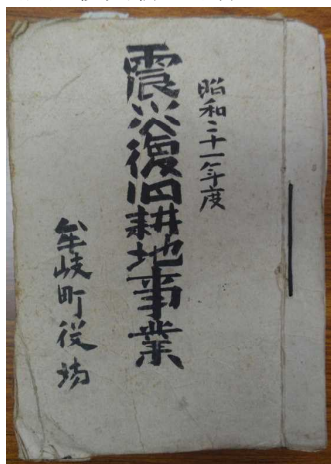 昭和二十一年度
震災復旧耕地事業
牟岐町役場